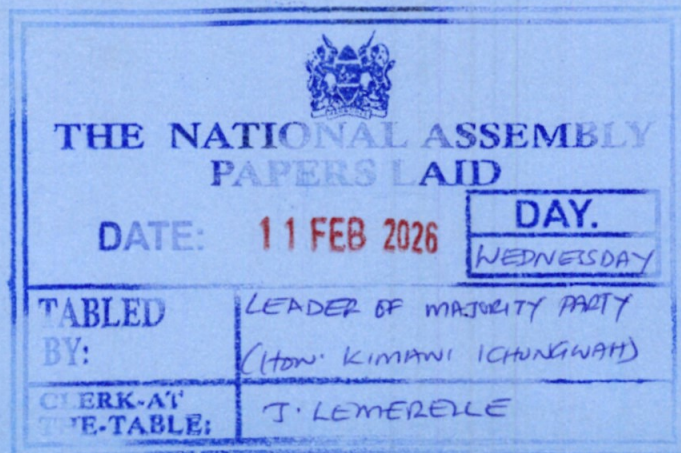 THE NATIONAL ASSEMBLY
PAPERS LAID
DATE: 11 FEB 2026
DAY.
WEDNESDAY
TABLED BY:
LEADER OF MAJORITY PARTY
(HON. KIMANI ICHUNGWAH)
CLERK-AT
THE-TABLE:
J. LEMERELLE